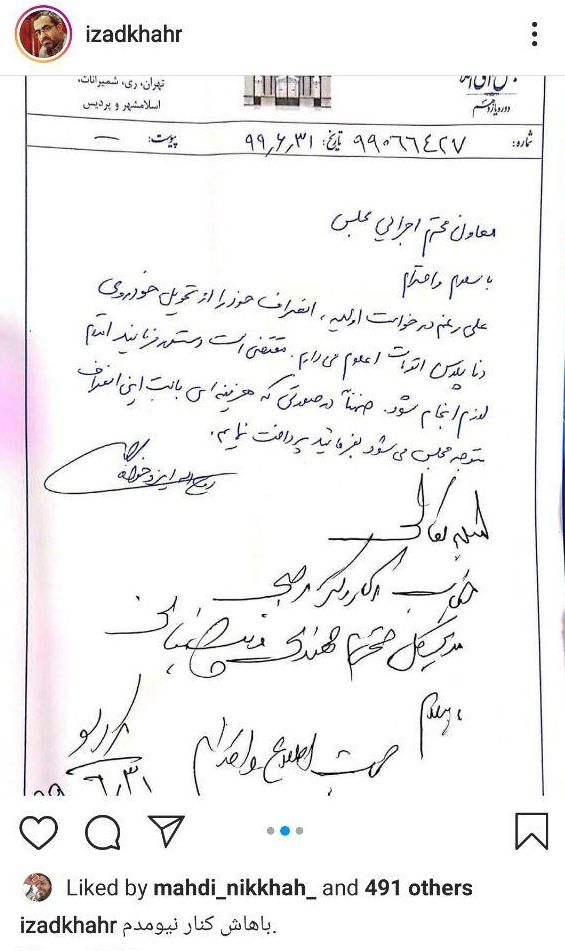 izadkhahr
تهران، ری، شمیرانات،
اسلامشهر و پردیس
دوره یازدهم
شماره: ۹۹۰۶۶۴۲۷ تاریخ: ۹۹,۶,۳۱ پیوست: —
معاون محترم اجرایی مجلس
با سلام و احترام
علی رغم درخواست اولیه، انصراف خود را از تحویل خودروی
دنا پلاس اتومات اعلام می دارم. مقتضی است دستور فرمائید اقدام
لازم انجام شود. ضمناً در صورتی که هزینه ای بابت این انصراف
متوجه مجلس می شود بفرمائید پرداخت نمایم.
روح اله ایزدخواه
بسمه تعالی
جناب آقای دکتر
مدیر کل محترم
با سلام
جهت اطلاع و اقدام
۹۹,۶,۳۱
Liked by mahdi_nikkhah_ and 491 others
izadkhahr باهاش کنار نیومدم.